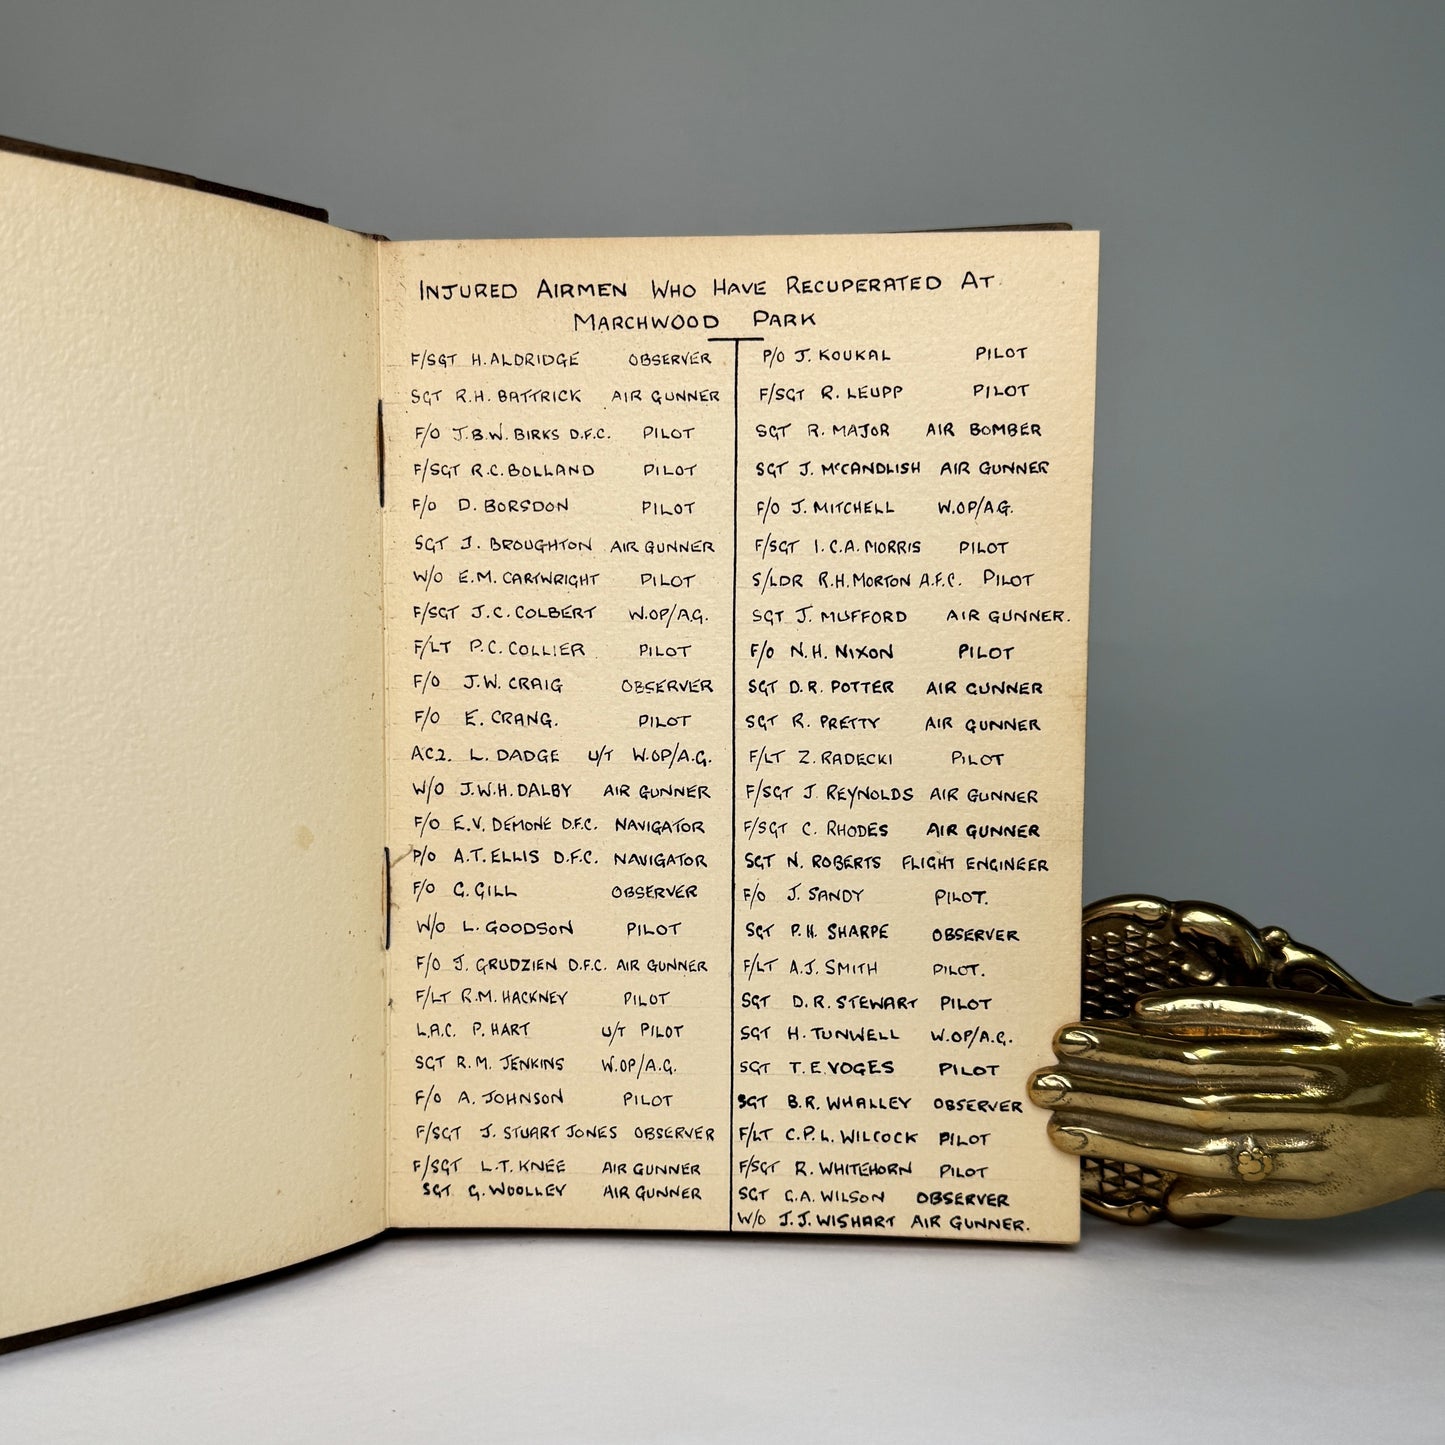 INJURED AIRMEN WHO HAVE RECUPERATED AT
MARCHWOOD PARK
F/SGT H. ALDRIDGE OBSERVER
SGT R.H. BATTRICK AIR GUNNER
F/O J.B.W. BIRKS D.F.C. PILOT
F/SGT R.C. BOLLAND PILOT
F/O D. BORSDON PILOT
SGT J. BROUGHTON AIR GUNNER
W/O E.M. CARTWRIGHT PILOT
F/SGT J.C. COLBERT W.OP/A.G.
F/LT P.C. COLLIER PILOT
F/O J.W. CRAIG OBSERVER
F/O E. CRANG. PILOT
A.C.2. L. DADGE U/T W.OP/A.G.
W/O J.W.H. DALBY AIR GUNNER
F/O E.V. DEMONE D.F.C. NAVIGATOR
P/O A.T. ELLIS D.F.C. NAVIGATOR
F/O G. GILL OBSERVER
W/O L. GOODSON PILOT
F/O J. GRUDZIEN D.F.C. AIR GUNNER
F/LT R.M. HACKNEY PILOT
L.A.C. P. HART U/T PILOT
SGT R.M. JENKINS W.OP/A.G.
F/O A. JOHNSON PILOT
F/SGT J. STUART JONES OBSERVER
F/SGT L.T. KNEE AIR GUNNER
SGT G. WOOLLEY AIR GUNNER
P/O J. KOUKAL PILOT
F/SGT R. LEUPP PILOT
SGT R. MAJOR AIR BOMBER
SGT J. McCANDLISH AIR GUNNER
F/O J. MITCHELL W.OP/A.G.
F/SGT I.C.A. MORRIS PILOT
S/LDR R.H. MORTON A.F.C. PILOT
SGT J. MUFFORD AIR GUNNER.
F/O N.H. NIXON PILOT
SGT D.R. POTTER AIR GUNNER
SGT R. PRETTY AIR GUNNER
F/LT Z. RADECKI PILOT
F/SGT J. REYNOLDS AIR GUNNER
F/SGT C. RHODES AIR GUNNER
SGT N. ROBERTS FLIGHT ENGINEER
F/O J. SANDY PILOT.
SGT P.H. SHARPE OBSERVER
F/LT A.J. SMITH PILOT.
SGT D.R. STEWART PILOT
SGT H. TUNWELL W.OP/A.G.
SGT T.E. VOGES PILOT
SGT B.R. WHALLEY OBSERVER
F/LT C.P.L. WILCOCK PILOT
F/SGT R. WHITEHORN PILOT
SGT G.A. WILSON OBSERVER
W/O J.J. WISHART AIR GUNNER.